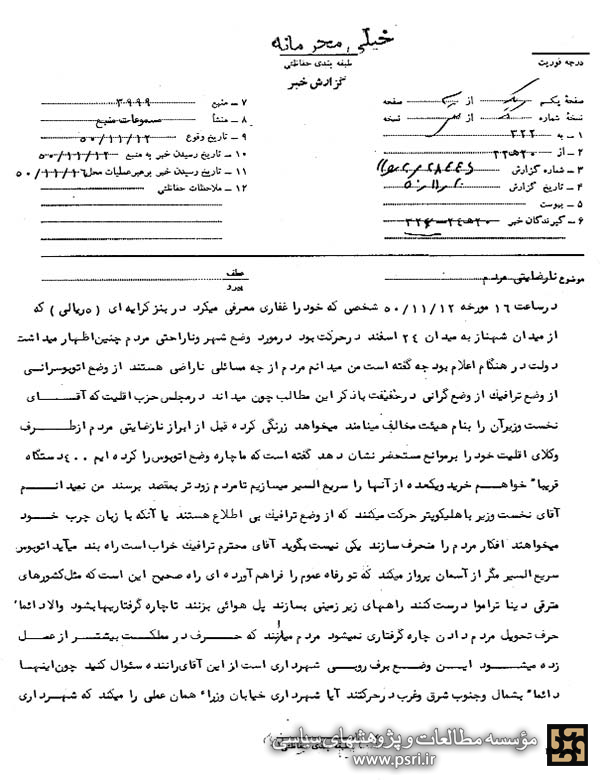 خیلی محرمانه
طبقه بندی حفاظتی
گزارش خبر
درجه فوریت
صفحه یکم از صفحه
نسخهٔ شماره از نسخه
۱ – به ۳۲۲
۲ – از ۲۰ه۲۲
۳ – شماره گزارش
۴ – تاریخ گزارش
۵ – پیوست
۶ – گیرندگان خبر
۷ – منبع ۳۹۹۹
۸ – منشأ مسموعات منبع
۹ – تاریخ وقوع ۵۰/۱۱/۱۲
۱۰ – تاریخ رسیدن خبر به منبع ۵۰/۱۱/۱۲
۱۱ – تاریخ رسیدن خبر برهبر عملیات محل ۵۰/۱۱/۱۶
۱۲ – ملاحظات حفاظتی
موضوع نارضایتی مردم
عطف
پیرو
در ساعت ۱۶ مورخه ۵۰/۱۱/۱۲ شخصی که خود را غفاری معرفی میکرد در بنز کرایه ای (۵ ریالی) که
از میدان شهناز به میدان ۲۴ اسفند در حرکت بود در مورد وضع شهر و ناراحتی مردم چنین اظهار میداشت
دولت در هنگام اعلام بودجه گفته است من میدانم مردم از چه مسائلی ناراضی هستند از وضع اتوبوسرانی
از وضع ترافیک از وضع گرانی در حقیقت باذکر این مطالب چون میداند در مجلس حزب اقلیت که آقای
نخست وزیر آن را بنام هیئت مخالف مینامند میخواهد زرنگی کرده قبل از ابراز نارضایتی مردم از طرف
وکلای اقلیت خود را بر موانع مستحضر نشان دهد گفته است که ما چاره وضع اتوبوس را کرده ایم ۴۰۰ دستگاه
تقریبا" خواهیم خرید ویکعده از آنها را سریع السیر میسازیم تا مردم زودتر بمقصد برسند من نمیدانم
آقای نخست وزیر با هلیکوپتر حرکت میکنند که از وضع ترافیک بی اطلاع هستند یا آنکه با زبان چرب خود
میخواهند افکار مردم را منحرف سازند یکی نیست بگوید آقای محترم ترافیک خراب است راه بند میآید اتوبوس
سریع السیر مگر از آسمان پرواز میکند که تو رفاه عموم را فراهم آورده ای راه صحیح این است که مثل کشورهای
مترقی دینا تراموا درست کنند راههای زیر زمینی بسازند پل هوائی بزنند تا چاره گرفتاریها بشود والا دائما"
حرف تحویل مردم دادن چاره گرفتاری نمیشود مردم میدانند که حرف در مملکت بیشتر از عمل
زده میشود این وضع برف روبی شهرداری است از این آقای راننده سئوال کنید چون اینها
دائما" بشمال وجنوب شرق وغرب در حرکتند آیا شهرداری خیابان وزراء همان عملی را میکند که شهرداری
طبقه بندی حفاظتی
مؤسسه مطالعات و پژوهشهای سیاسی
www.psri.ir